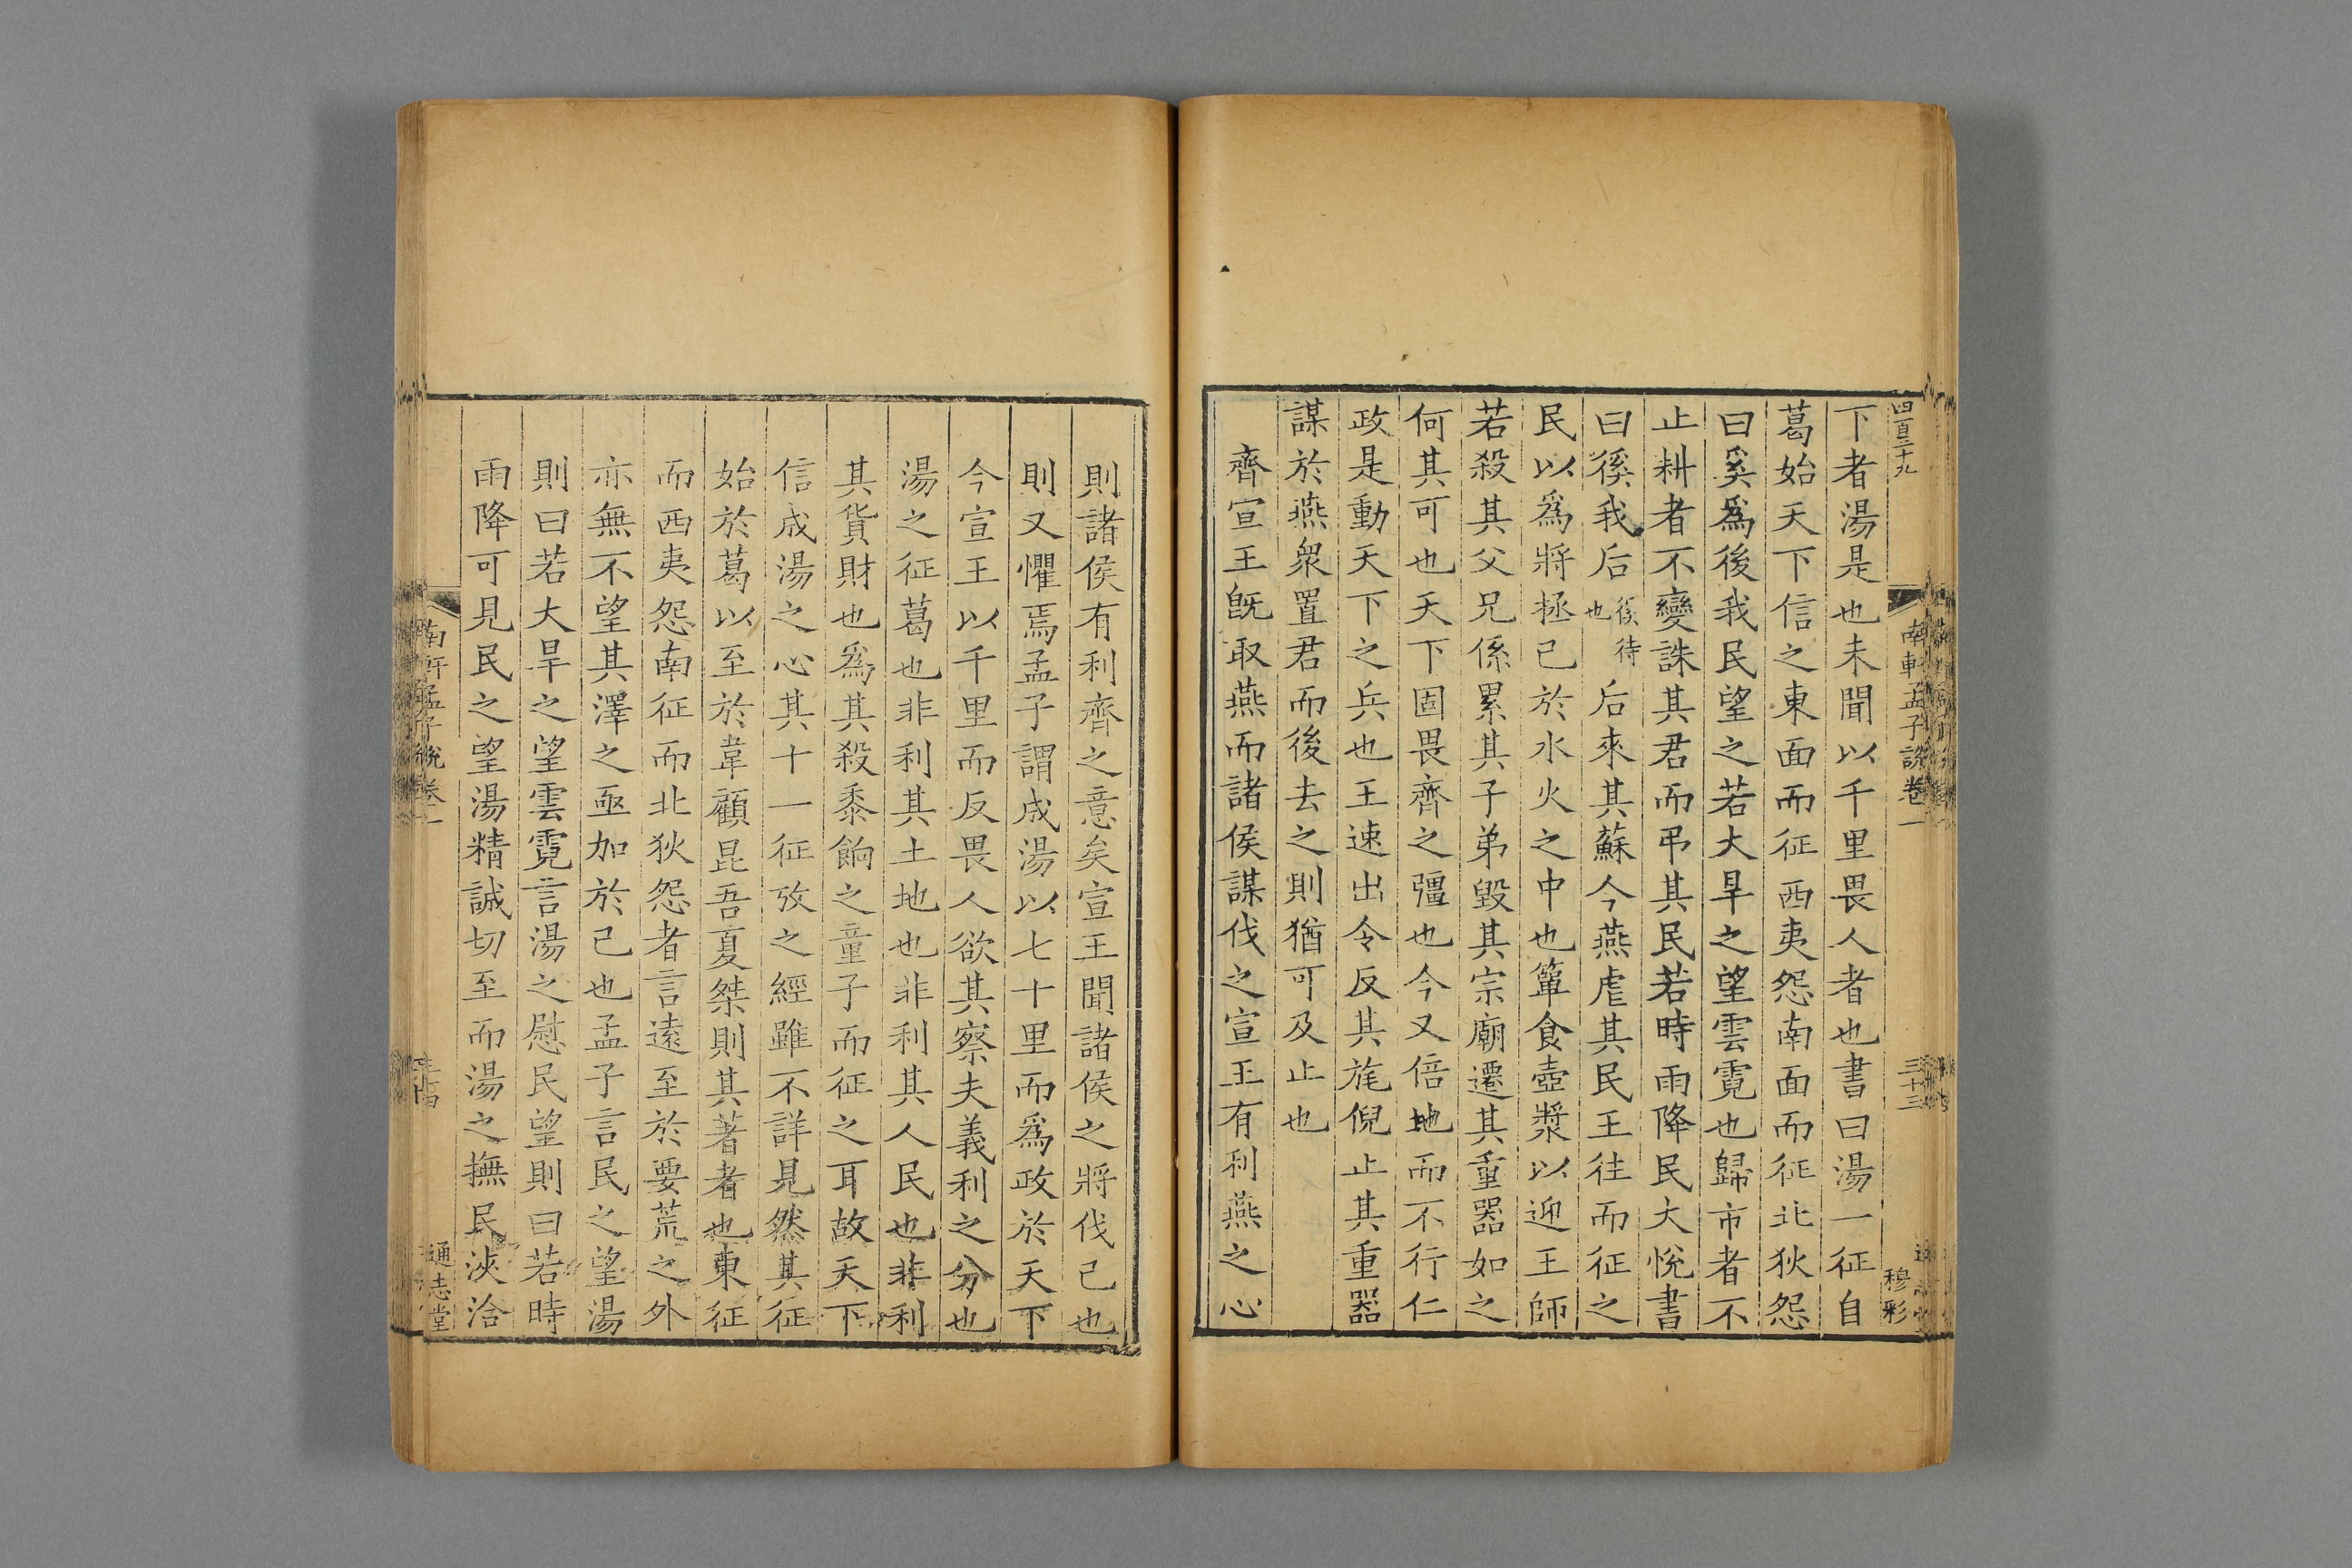 四百三十九
南軒孟子說卷一
三十三
穆彩
下者湯是也未聞以千里畏人者也書曰湯一征自
葛始天下信之東面而征西夷怨南面而征北狄怨
曰奚爲後我民望之若大旱之望雲霓也歸市者不
止耕者不變誅其君而弔其民若時雨降民大悅書
曰徯我后徯待也后來其蘇今燕虐其民王往而征之
民以爲將拯己於水火之中也簞食壺漿以迎王師
若殺其父兄係累其子弟毀其宗廟遷其重器如之
何其可也天下固畏齊之彊也今又倍地而不行仁
政是動天下之兵也王速出令反其旄倪止其重器
謀於燕衆置君而後去之則猶可及止也
齊宣王旣取燕而諸侯謀伐之宣王有利燕之心
則諸侯有利齊之意矣宣王聞諸侯之將伐己也
則又懼焉孟子謂成湯以七十里而爲政於天下
今宣王以千里而反畏人欲其察夫義利之分也
湯之征葛也非利其土地也非利其人民也非利
其貨財也爲其殺黍餉之童子而征之耳故天下
信成湯之心其十一征攷之經雖不詳見然其征
始於葛以至於韋顧昆吾夏桀則其著者也東征
而西夷怨南征而北狄怨者言遠至於要荒之外
亦無不望其澤之亟加於己也孟子言民之望湯
則曰若大旱之望雲霓言湯之慰民望則曰若時
雨降可見民之望湯精誠切至而湯之撫民浹洽
南軒孟子說卷一
通志堂